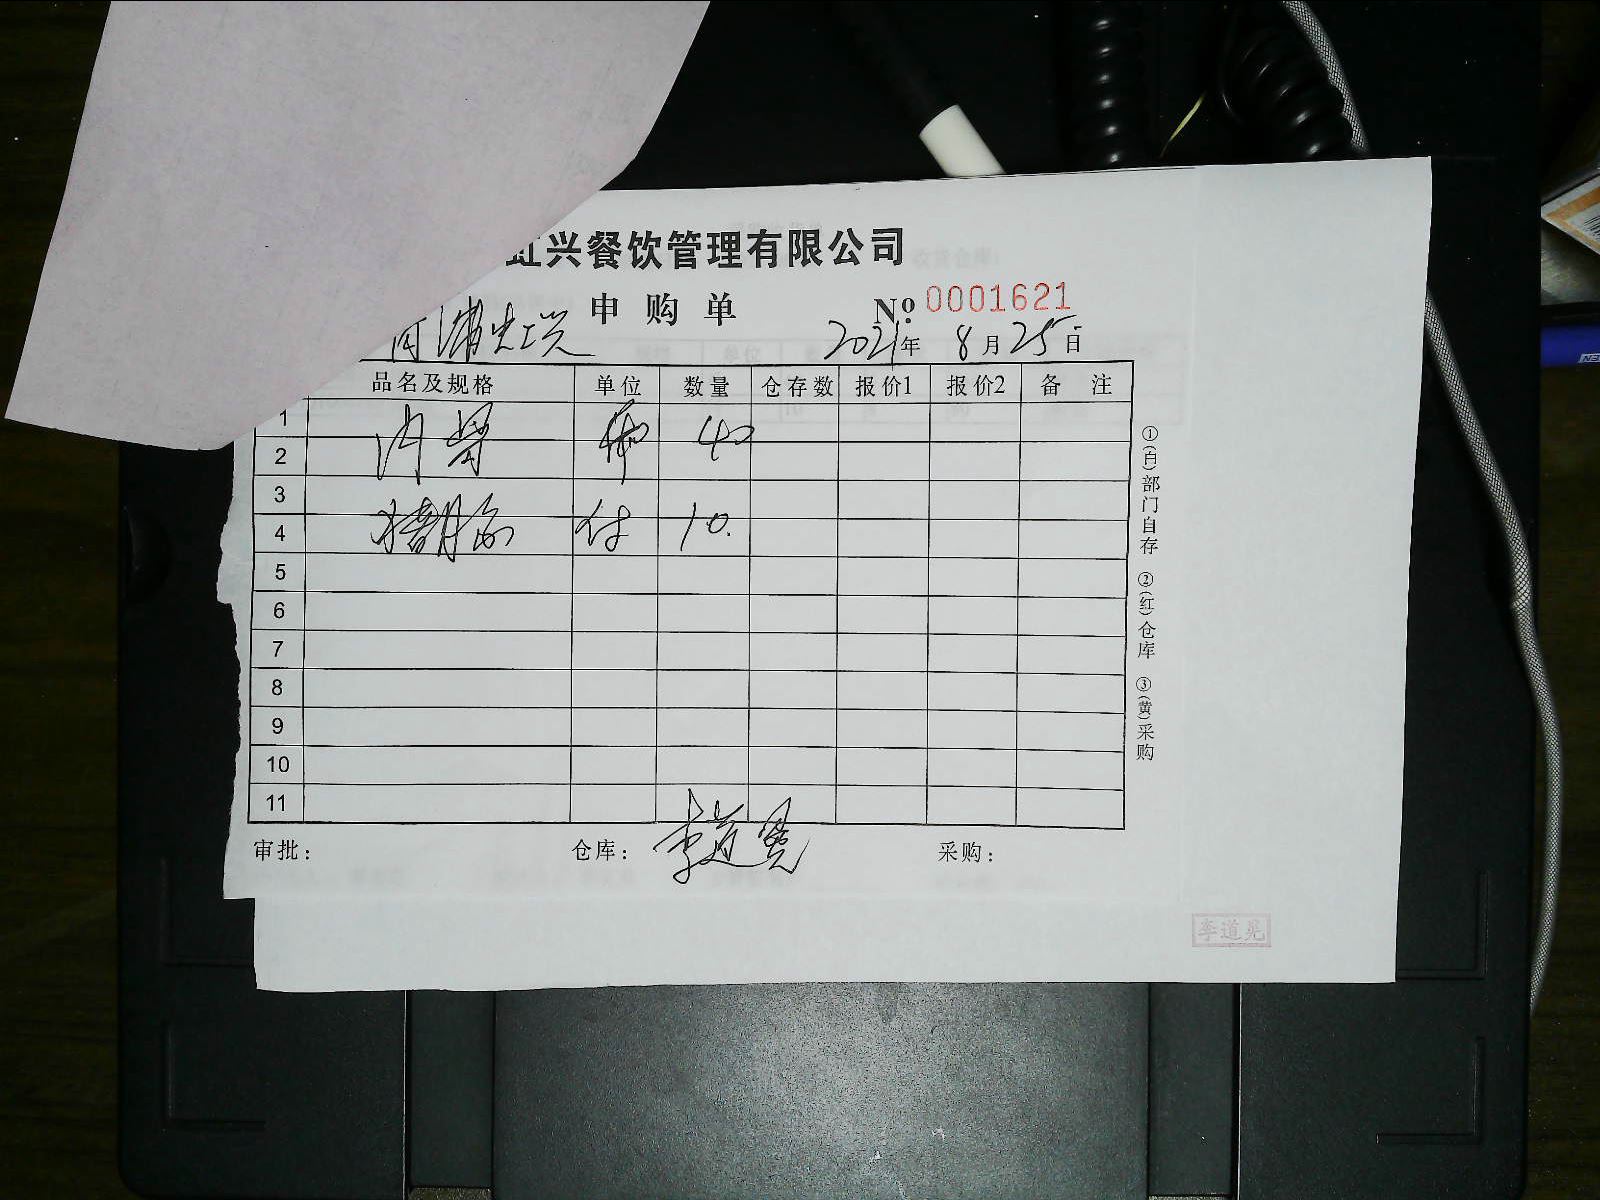 虹兴餐饮管理有限公司
申购单 № 0001621
2021年 8月25日
品名及规格 单位 数量 仓存数 报价1 报价2 备 注
1
2 40
3
4 付 10.
5
6
7
8
9
10
11
审批： 仓库：李道晃 采购：
①(白)部门自存 ②(红)仓库 ③(黄)采购
李道晃